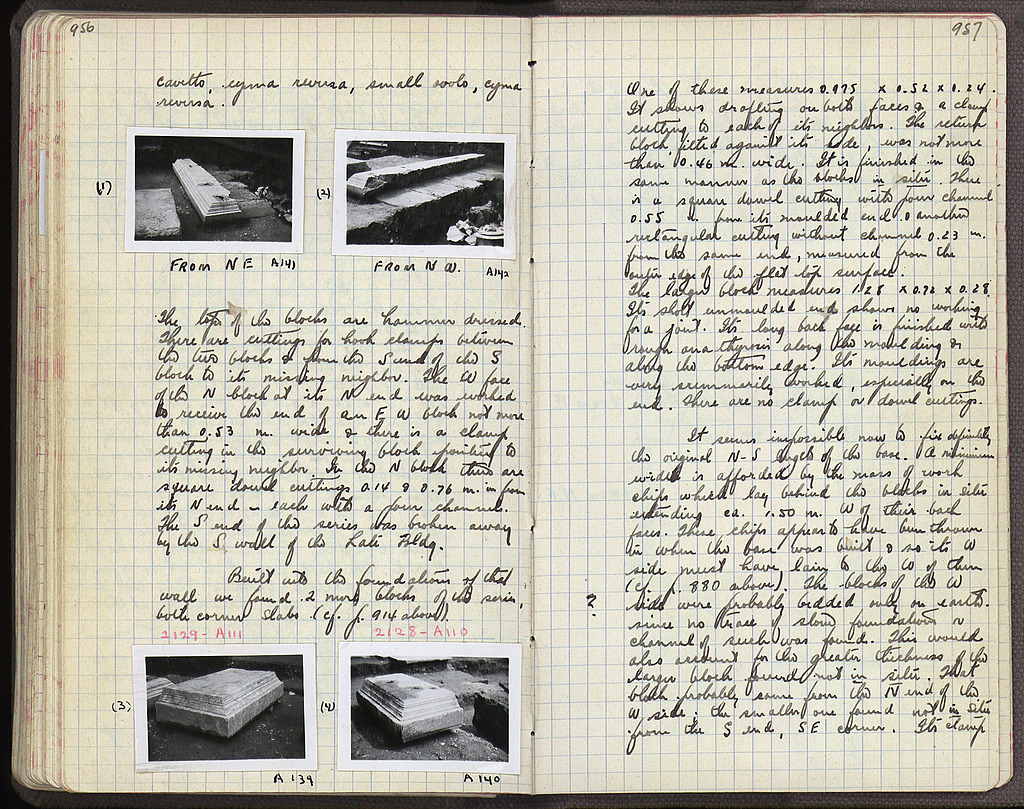 956
cavetto, cyma reversa, small ovolo, cyma
reversa.
(1)
(2)
FROM NE A141
FROM N W. A142
The tops of the blocks are hammer dressed.
There are cuttings for hook clamps between
the two blocks & from the S end of the S
block to its missing neighbor. The W face
of the N block at its N end was worked
to receive the end of an E W block not more
than 0.53 m. wide & there is a clamp
cutting in the surviving block
its missing neighbor. In the N block there are
square dowel cuttings 0.14 & 0.76 m. in from
its N end – each with a pour channel.
The S end of the series was broken away
by the S wall of the Late Bldg.
Built into the foundations of that
wall we found 2 more blocks of the series,
both corner slabs (cf. p. 914 above).
2129-A111
2128-A110
(3)
(4)
A 139
A 140
957
One of these measures 0.975 x 0.52 x 0.24.
It shows drafting on both faces & a clamp
cutting to each of its neighbors. The return
block fitted against its side, was not more
than 0.46 m. wide. It is finished in the
same manner as the blocks in situ. There
is a square dowel cutting with pour channel
0.55 m. from its moulded end & another
rectangular cutting without channel 0.23 m.
from the same end, measured from the
outer edge of the flat top surface.
The larger block measures 1.28 x 0.92 x 0.28.
Its short unmoulded end shows no working
for a joint. Its long back face is finished with
rough anathyrosis along the moulding &
along the bottom edge. Its mouldings are
very summarily worked, especially on the
end. There are no clamp or dowel cuttings.
It seems impossible now to fix definitely
the original N-S length of the base. A minimum
width is afforded by the mass of work
chips which lay behind the blocks in situ
extending ca. 1.50 m. W of their back
faces. These chips appear to have been thrown
in when the base was built & so its W
side must have lain to the W of them
(cf. p. 880 above). The blocks of the W
?
side were probably bedded only on earth
since no trace of stone foundation or
channel of such was found. This would
also account for the greater thickness of the
larger block found not in situ. That
block probably came from the N end of the
W side. The smaller one found not in situ
from the S end, SE corner. Its clamp